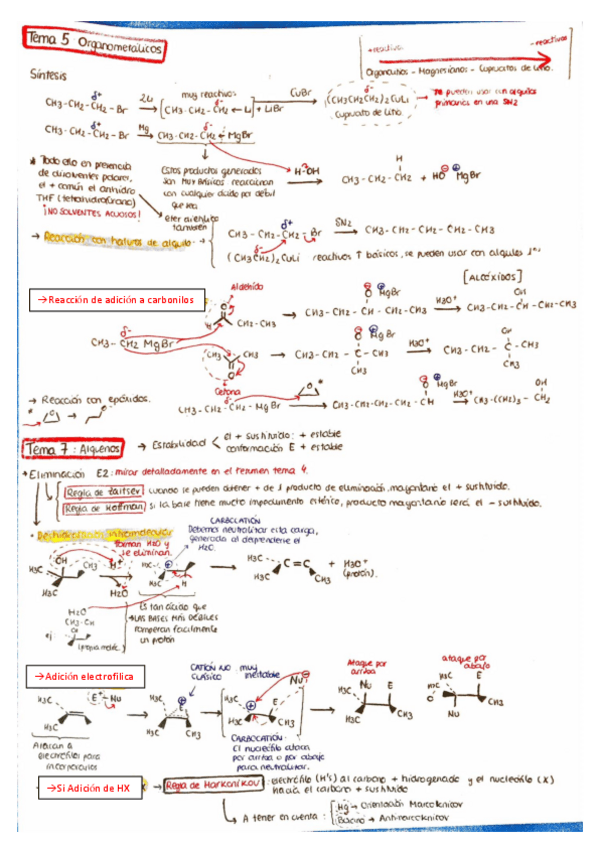 Tema 5 Organometálicos
+ reactivo - reactivos
Organolitios - Magnesianos - Cupruatos de litio.
Síntesis
CH3-CH2-CH2-Br 2Li muy reactivos [CH3-CH2-CH2 ← Li] + LiBr CuBr (CH3CH2CH2)2CuLi Cupruato de litio
se pueden usar con alquilos primarios en una SN2
CH3-CH2-CH2-Br Mg CH3-CH2-CH2 MgBr
* Todo ello en presencia de disolventes polares, el + común el anhidro THF (tetrahidrofurano)
¡NO SOLVENTES ACUOSOS!
éter dietílico también
Estos productos generados son muy básicos reaccionan con cualquier ácido por débil que sea
H-OH
CH3-CH2-CH2 + HO MgBr
→ Reacción con haluros de alquilo.
CH3-CH2-CH2-Br SN2 CH3-CH2-CH2-CH2-CH3
(CH3CH2)2CuLi reactivos ↑ básicos, se pueden usar con alquilos 1
→Reacción de adición a carbonilos
Aldehído
[ALCÓXIDOS]
H CH2-CH3
CH3-CH2-CH-CH2-CH3 H3O+ CH3-CH2-CH-CH2-CH3
CH3-CH2MgBr
CH3 CH3
Cetona
CH3-CH2-C-CH3 H3O+ CH3-CH2-C-CH3
→ Reacción con epóxidos.
CH3-CH2-CH2-MgBr CH3-CH2-CH2-CH2-CH H3O+ CH3-(CH2)3-CH2
Tema 7: Alquenos → Estabilidad < el + sustituido: + estable
conformación E + estable
* Eliminación E2: mirar detalladamente en el resumen tema 4.
Regla de Zaitsev cuando se pueden obtener + de 1 producto de eliminación, mayoritario el + sustituido.
Regla de Hoffman si la base tiene mucho impedimento estérico, producto mayoritario será el - sustituido.
Deshidratación intramolecular
Forman H2O y se eliminan.
CARBOCATIÓN
Debemos neutralizar esta carga, generada al desprenderse el H2O.
H3C OH CH3 H+ H2O
H3C C=C CH3 + H3O+ (protón).
H2O
Es tan ácido que LAS BASES MÁS DÉBILES romperán fácilmente un protón
ej (propia moléc.)
→Adición electrofílica
E+ Nu
CATIÓN NO CLÁSICO
muy inestable
Nu
Ataque por arriba
ataque por abajo
H3C CH3
Nu E
CARBOCATIÓN:
El nucleófilo ataca por arriba o por abajo para neutralizar.
Atacan a electrófilos para incorporarlos
→Si Adición de HX
Regla de Markonikov: electrófilo (H's) al carbono + hidrogenado y el nucleófilo (X) hacia el carbono + sustituido
A tener en cuenta: Hg → Orientación Marcoknikov
Boro → Antimarcoknikov